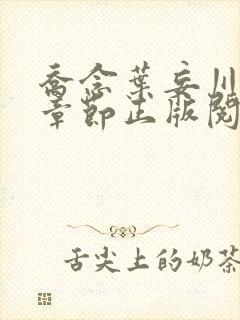 乔念葉妄川
章節正版閱
舌尖上的奶茶